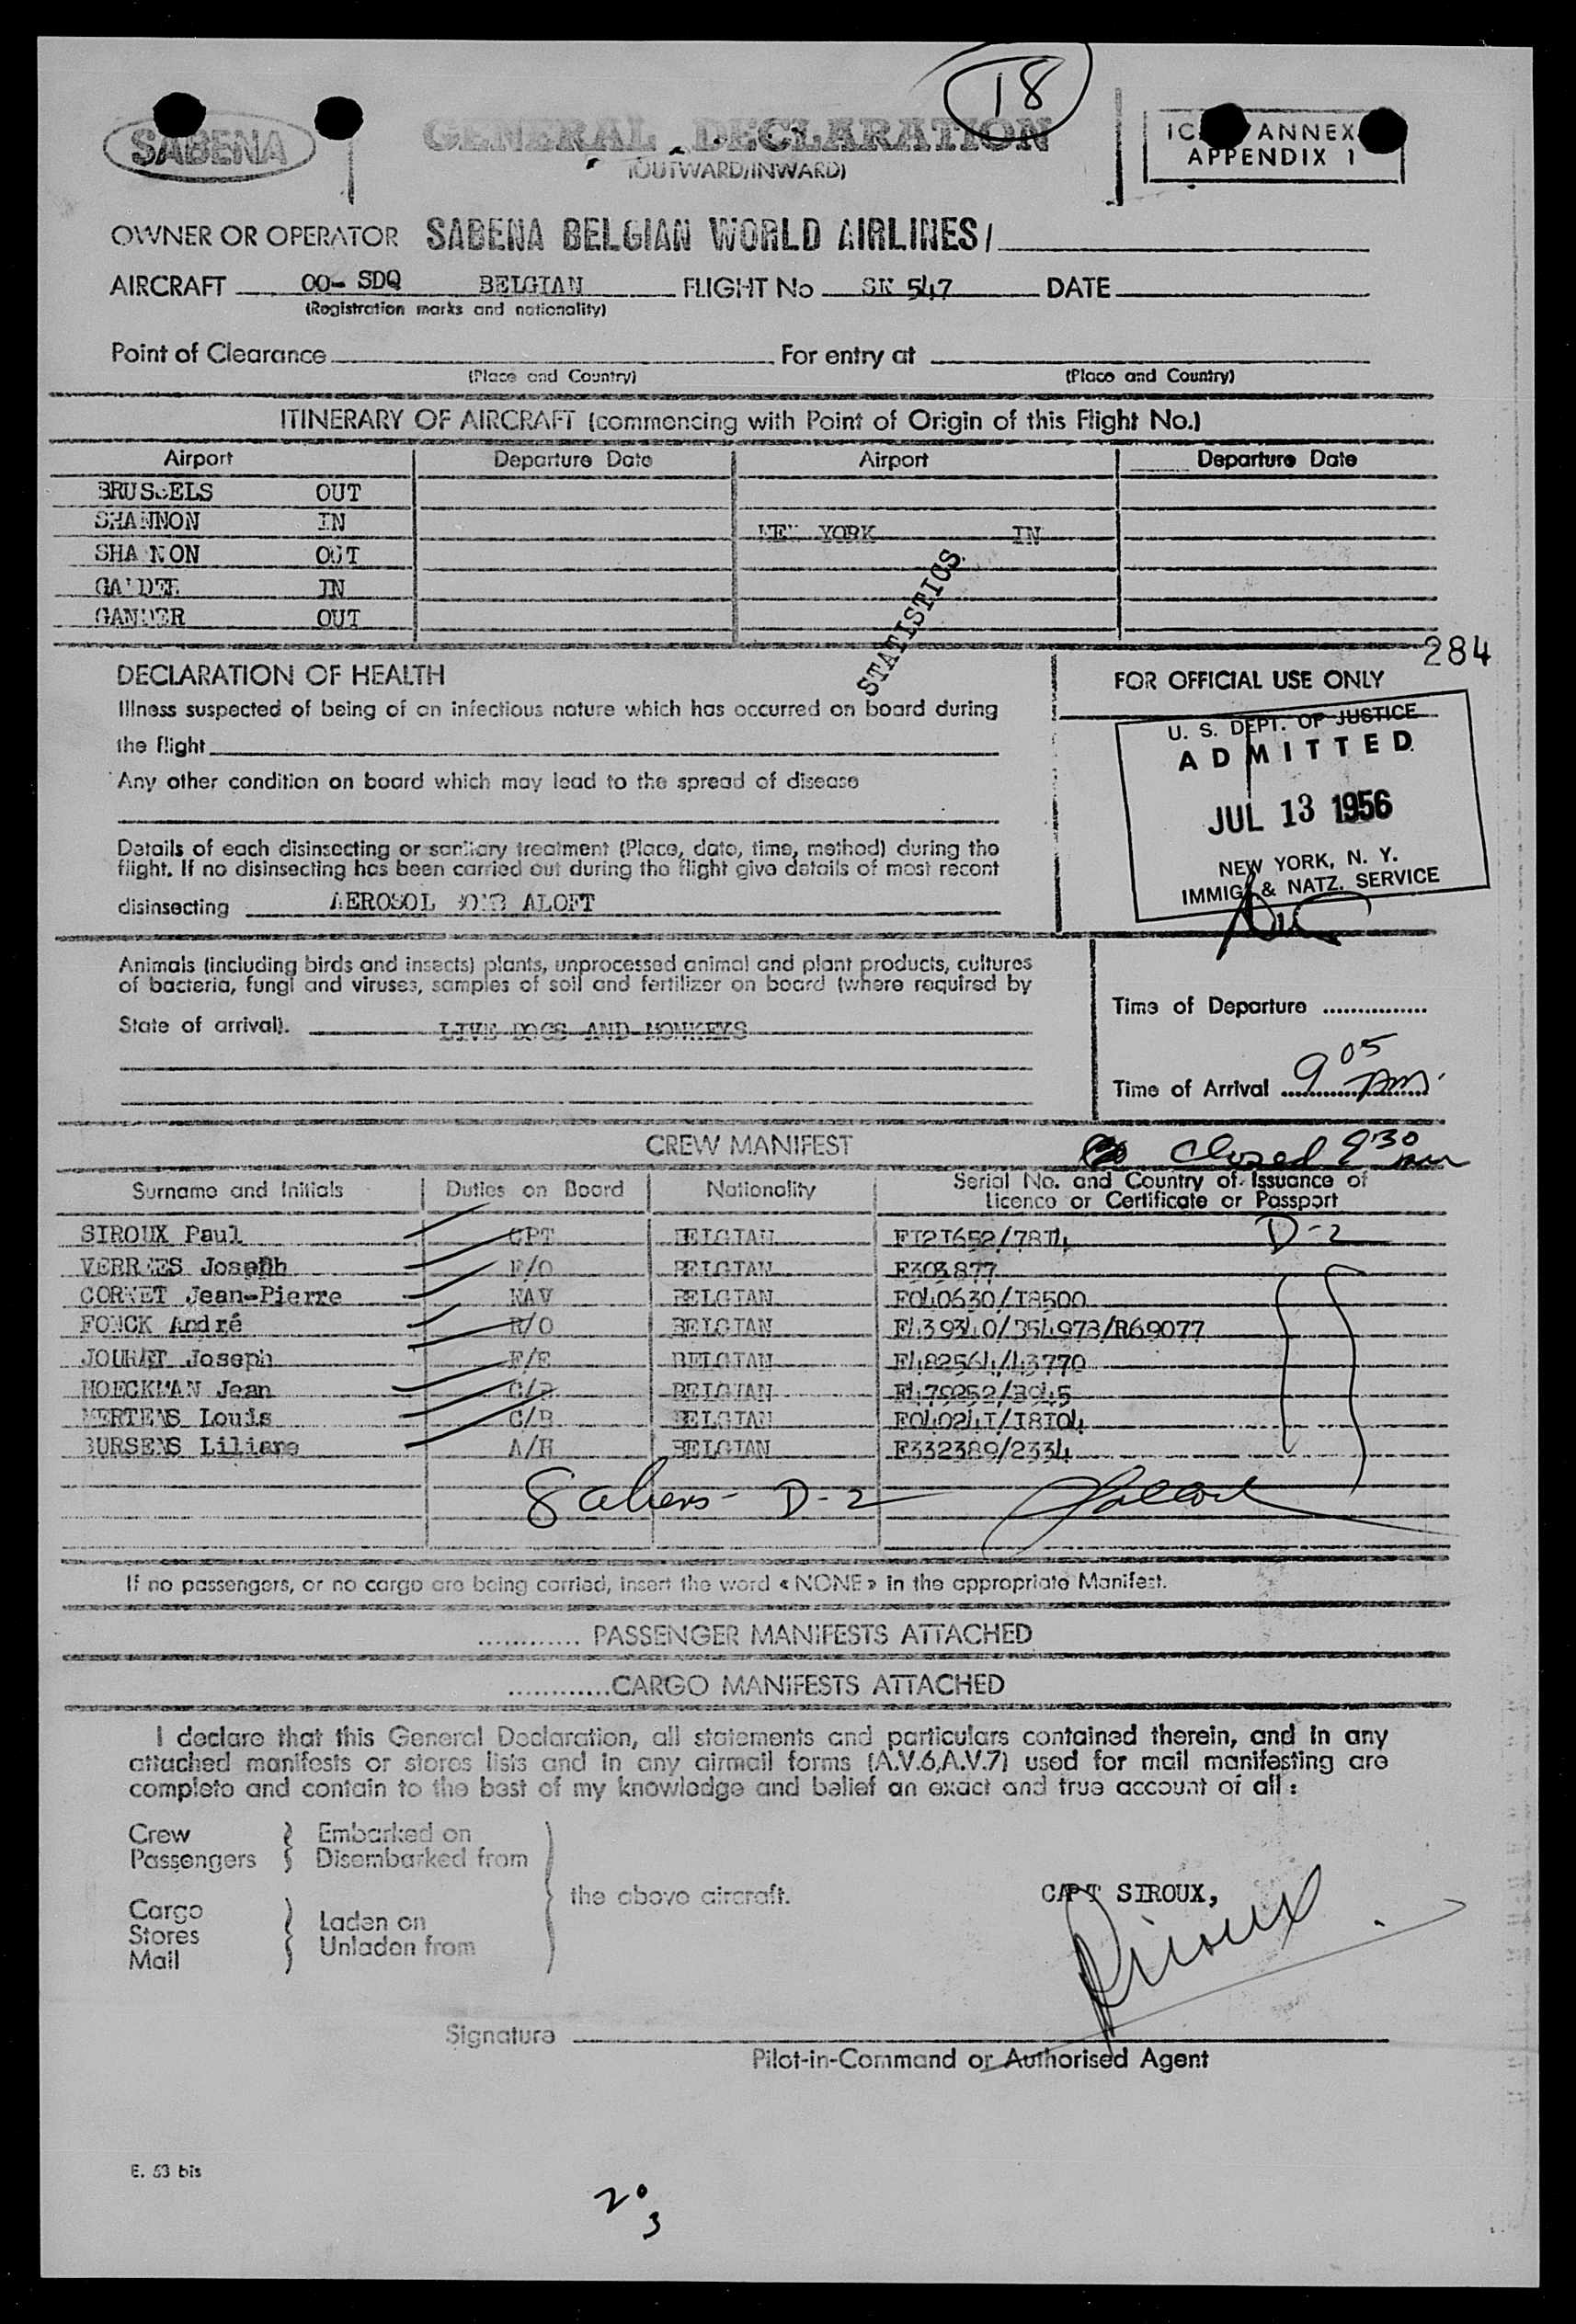 18
SABENA
GENERAL DECLARATION
(OUTWARD/INWARD)
ANNEX
APPENDIX 1
OWNER OR OPERATOR SABENA BELGIAN WORLD AIRLINES/
AIRCRAFT OO- SDQ BELGIAN FLIGHT No SN 547 DATE
(Registration marks and nationality)
Point of Clearance For entry at
(Place and Country) (Place and Country)
ITINERARY OF AIRCRAFT (commencing with Point of Origin of this Flight No.)
Airport Departure Date Airport Departure Date
BRUSSELS OUT
SHANNON IN
NEW YORK IN
SHANNON OUT
GANDER IN
GANDER OUT
STATISTICS
284
DECLARATION OF HEALTH
Illness suspected of being of an infectious nature which has occurred on board during
the flight
Any other condition on board which may lead to the spread of disease
Details of each disinsecting or sanitary treatment (Place, date, time, method) during the
flight. If no disinsecting has been carried out during the flight give details of most recent
disinsecting AEROSOL BOMB ALOFT
FOR OFFICIAL USE ONLY
U. S. DEPT. OF JUSTICE
ADMITTED
JUL 13 1956
NEW YORK, N. Y.
IMMIG. & NATZ. SERVICE
Animals (including birds and insects) plants, unprocessed animal and plant products, cultures
of bacteria, fungi and viruses, samples of soil and fertilizer on board (where required by
State of arrival). LIVE DOGS AND MONKEYS
Time of Departure
Time of Arrival 9 05 AM.
CREW MANIFEST
Closed 9 30 am
Surname and Initials Duties on Board Nationality Serial No. and Country of Issuance of
Licence or Certificate or Passport
SIROUX Paul CPT BELGIAN D-2
Joseph F/O BELGIAN
CORNET Jean-Pierre NAV BELGIAN F040630/I8500
FONCK André R/O BELGIAN
Joseph F/E BELGIAN
MOECKMAN Jean BELGIAN
MERTENS Louis C/B BELGIAN F04024I/I8I04
BURSENS Liliane A/H BELGIAN F332389/2334
8 aliens - D-2
If no passengers, or no cargo are being carried, insert the word « NONE » in the appropriate Manifest.
............ PASSENGER MANIFESTS ATTACHED
............CARGO MANIFESTS ATTACHED
I declare that this General Declaration, all statements and particulars contained therein, and in any
attached manifests or stores lists and in any airmail forms (A.V.6,A.V.7) used for mail manifesting are
complete and contain to the best of my knowledge and belief an exact and true account of all :
Crew Embarked on
Passengers Disembarked from
the above aircraft.
Cargo
Stores Laden on
Mail Unladen from
CAPT SIROUX,
Siroux
Signature
Pilot-in-Command or Authorised Agent
E. 53 bis
20
3